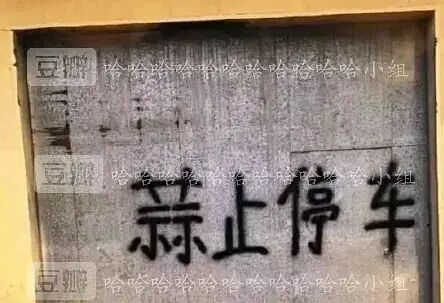 豆瓣 哈哈哈哈哈哈哈哈哈哈哈小组
豆瓣 哈哈哈哈哈哈哈哈哈哈哈小组
蒜止停车
豆瓣 哈哈哈哈哈哈哈哈哈哈哈小组